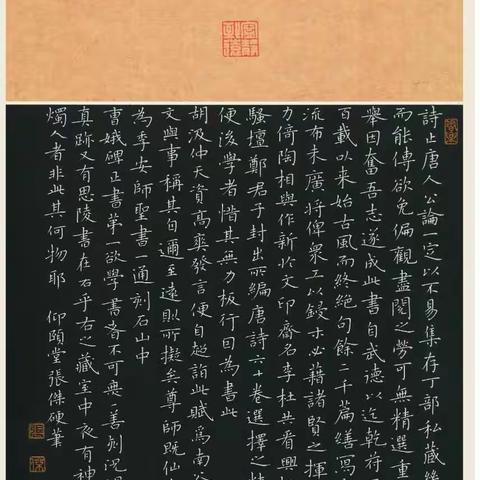 詩止唐人公論一定以不易集存丁部私藏緣
而能傳欲免偏觀盡閱之勞可無精選重
舉因奮吾志遂成此書自武德以迄乾符
百載以來始古風而終絕句餘二千篇繕寫
流布未廣將俾衆工以鋟木必藉諸賢之揮
力倚陶相與作新於文印齋名李杜共看興
騷壇鄭君子封出所編唐詩六十卷選擇之精
便後學者惜其無力板行因為書此
胡汲仲天資高爽發言便自超詣此賦爲南谷
文與事稱其自邇至遠則所擬矣尊師既仙
為季安師聖書一通刻石山中
曹娥碑正書第一欲學書者不可無一善刻況
真跡又有思陵書在右乎右之藏室中夜有神
燭人者非此其何物耶 仰頤堂張傑硬筆